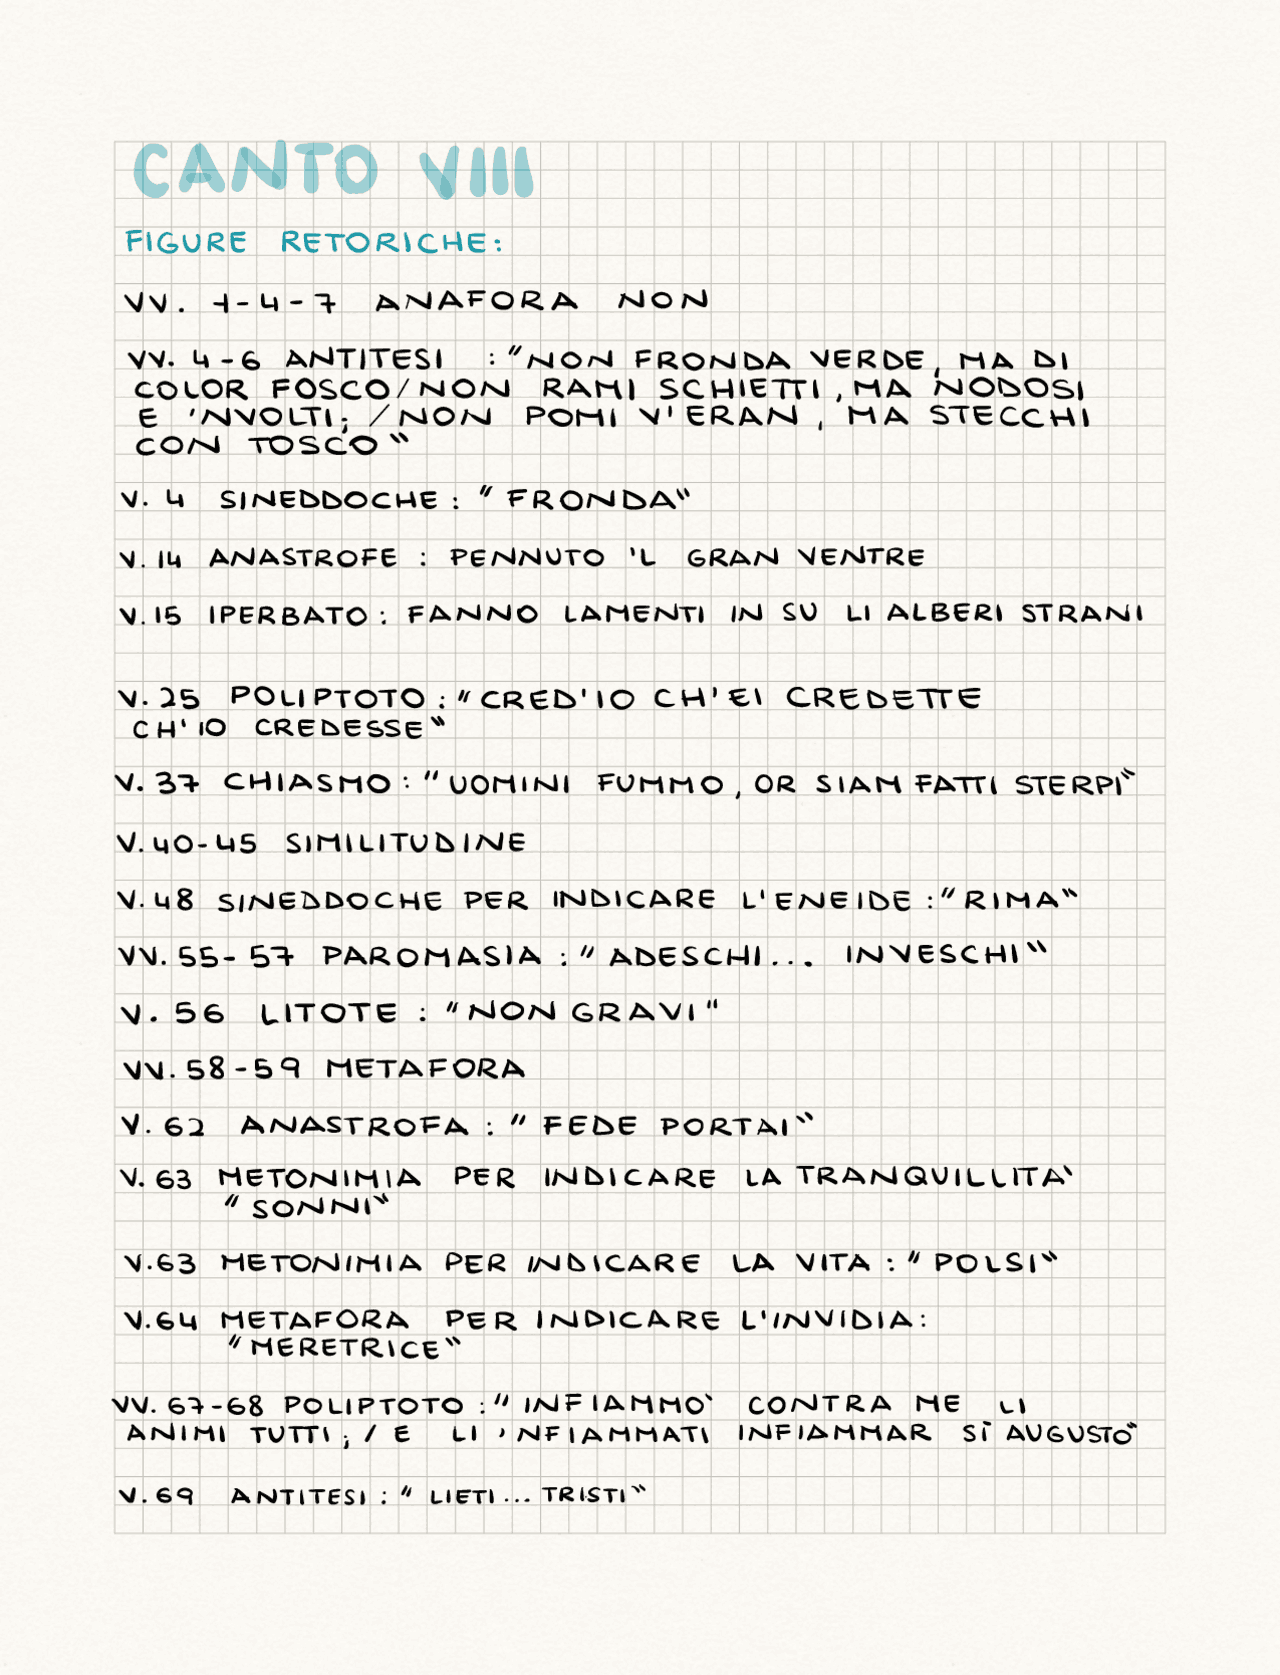 CANTO VIII
FIGURE RETORICHE:
VV. 1-4-7 ANAFORA NON
VV. 4-6 ANTITESI : "NON FRONDA VERDE, MA DI
COLOR FOSCO/NON RAMI SCHIETTI, MA NODOSI
E 'NVOLTI; /NON POMI V'ERAN, MA STECCHI
CON TOSCO"
V. 4 SINEDDOCHE: "FRONDA"
V. 14 ANASTROFE : PENNUTO 'L GRAN VENTRE
V. 15 IPERBATO: FANNO LAMENTI IN SU LI ALBERI STRANI
V. 25 POLIPTOTO: "CRED'IO CH'EI CREDETTE
CH'IO CREDESSE"
V. 37 CHIASMO: "UOMINI FUMMO, OR SIAM FATTI STERPI"
V. 40-45 SIMILITUDINE
V. 48 SINEDDOCHE PER INDICARE L'ENEIDE: "RIMA"
VV. 55-57 PAROMASIA: "ADESCHI... INVESCHI"
V. 56 LITOTE : "NON GRAVI"
VV. 58-59 METAFORA
V. 62 ANASTROFA: "FEDE PORTAI"
V. 63 METONIMIA PER INDICARE LA TRANQUILLITA'
"SONNI"
V. 63 METONIMIA PER INDICARE LA VITA: "POLSI"
V. 64 METAFORA PER INDICARE L'INVIDIA:
"MERETRICE"
VV. 67-68 POLIPTOTO: "INFIAMMÒ CONTRA ME LI
ANIMI TUTTI; / E LI 'NFIAMMATI INFIAMMAR SÌ AUGUSTO"
V. 69 ANTITESI: "LIETI... TRISTI"